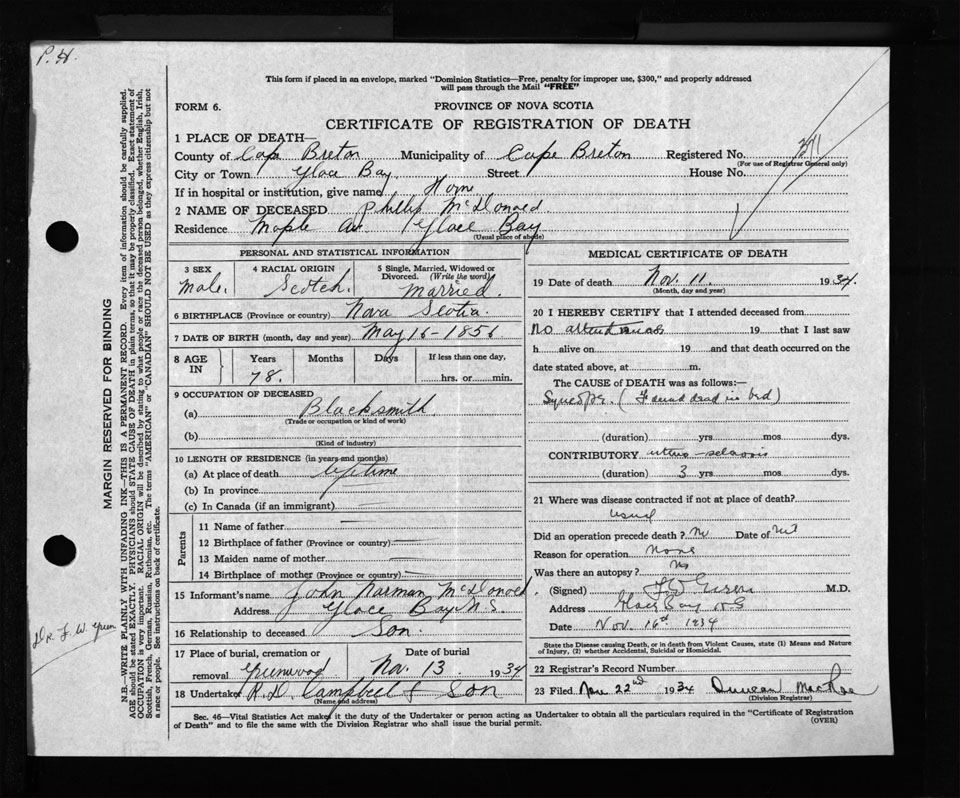 P. H.
This form if placed in an envelope, marked "Dominion Statistics—Free, penalty for improper use, $300," and properly addressed
will pass through the Mail "FREE"
FORM 6.
PROVINCE OF NOVA SCOTIA
CERTIFICATE OF REGISTRATION OF DEATH
1 PLACE OF DEATH—
County of Cape Breton Municipality of Cape Breton Registered No.
(For use of Registrar General only)
City or Town Glace Bay Street House No.
If in hospital or institution, give name Home
2 NAME OF DECEASED Phillip McDonald
Residence Maple Av. Glace Bay
(Usual place of abode)
PERSONAL AND STATISTICAL INFORMATION
3 SEX
Male.
4 RACIAL ORIGIN
Scotch.
5 Single, Married, Widowed or
Divorced. (Write the word)
Married.
6 BIRTHPLACE (Province or country) Nova Scotia.
7 DATE OF BIRTH (month, day and year) May 16-1856
8 AGE IN
Years Months Days If less than one day,
78. hrs. or min.
9 OCCUPATION OF DECEASED
(a) Blacksmith.
(Trade or occupation or kind of work)
(b)
(Kind of industry)
10 LENGTH OF RESIDENCE (in years and months)
(a) At place of death lifetime
(b) In province
(c) In Canada (if an immigrant)
Parents
11 Name of father
12 Birthplace of father (Province or country)
13 Maiden name of mother
14 Birthplace of mother (Province or country)
15 Informant's name John Norman McDonald
Address Glace Bay N.S.
16 Relationship to deceased Son.
17 Place of burial, cremation or
removal Greenwood
Date of burial
Nov. 13 1934
18 Undertaker R. D. Campbell & Son
(Name and address)
MEDICAL CERTIFICATE OF DEATH
19 Date of death Nov. 11. 1934.
(Month, day and year)
20 I HEREBY CERTIFY that I attended deceased from
No attendance 19 that I last saw
h alive on 19 and that death occurred on the
date stated above, at m.
The CAUSE of DEATH was as follows:—
Syncope. (Found dead in bed)
(duration) yrs mos dys.
CONTRIBUTORY
(duration) 3 yrs. mos. dys.
21 Where was disease contracted if not at place of death?
usual
Did an operation precede death? No Date of
Reason for operation None
Was there an autopsy? No
(Signed) M.D.
Address Glace Bay N.S
Date Nov. 16th 1934
State the Disease causing Death, or in death from Violent Causes, state (1) Means and Nature
of Injury, (2) whether Accidental, Suicidal or Homicidal.
22 Registrar's Record Number
23 Filed Nov 22nd 1934 Duncan MacRae
(Division Registrar)
Sec. 46—Vital Statistics Act makes it the duty of the Undertaker or person acting as Undertaker to obtain all the particulars required in the "Certificate of Registration
of Death" and to file the same with the Division Registrar who shall issue the burial permit. (OVER)
MARGIN RESERVED FOR BINDING
N.B.—WRITE PLAINLY WITH UNFADING INK—THIS IS A PERMANENT RECORD. Every item of information should be carefully supplied.
AGE should be stated EXACTLY. PHYSICIANS should STATE CAUSE OF DEATH in plain terms, so that it may be properly classified. Exact statement of
OCCUPATION is very important. RACIAL ORIGIN will be described by stating to what people or race the deceased person belonged, whether English, Irish,
Scottish, French, German, Russian, Ruthenian, etc. The terms "AMERICAN" or "CANADIAN" SHOULD NOT BE USED as they express citizenship but not
a race or people. See instructions on back of certificate.
Dr. F. W. Green